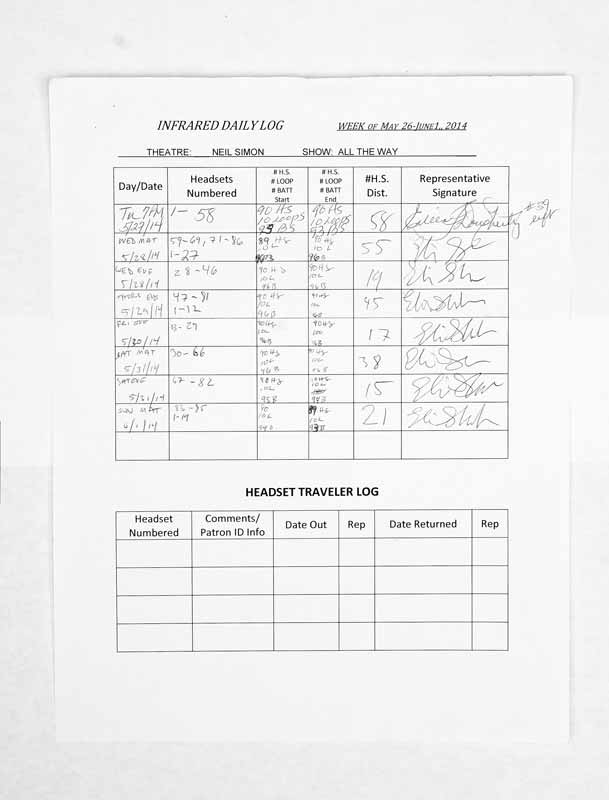 INFRARED DAILY LOG WEEK OF MAY 26-JUNE1,, 2014
THEATRE: NEIL SIMON SHOW: ALL THE WAY
Day/Date
Headsets
Numbered
# H.S.
# LOOP
# BATT
Start
# H.S.
# LOOP
# BATT
End
#H.S.
Dist.
Representative
Signature
Tu 7PM
5/27/14
1- 58
90 HS
10 LOOPS
95 BS
90 HS
10 LOOPS
93 BS
58
Eileen Dougherty #59 left
WED MAT
5/28/14
59-69, 71-86
1-27
89 HS
10 L
96B
90 HS
10 L
96B
55
WED EVE
5/28/14
28-46
90 HS
10L
96B
90 HS
10L
96B
19
EVE
5/29/14
47-81
1-12
90 HS
10L
96B
10L
45
FRI
5/30/14
13-29
90HS
10L
90HS
17
SAT MAT
5/31/14
30-66
90 HS
10L
96B
10L
38
SAT EVE
5/31/14
67-82
10L
95B
94B
15
SUN MAT
6/1/14
1-19
90
10L
94B
89 HS
10L
93B
21
HEADSET TRAVELER LOG
Headset
Numbered
Comments/
Patron ID Info
Date Out
Rep
Date Returned
Rep